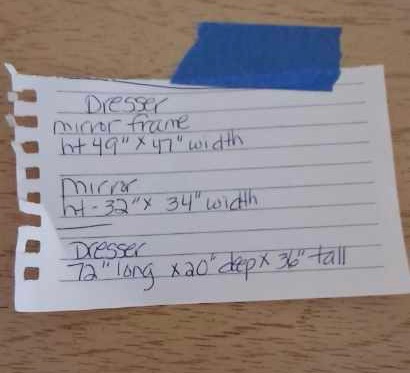 Dresser
mirror frame
ht 49" x 47" width
mirror
ht - 32" x 34" width
Dresser
72" long x 20" deep x 36" tall